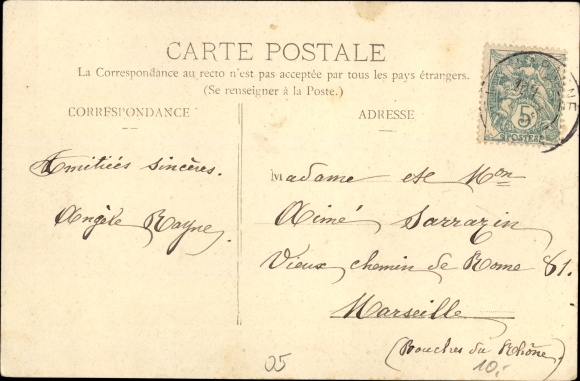 CARTE POSTALE
La Correspondance au recto n'est pas acceptée par tous les pays étrangers.
(Se renseigner à la Poste.)
CORRESPONDANCE
Amitiées sincères.
Angèle Rayne.
ADRESSE
Madame et Mon
Aimé Sarrazin
Vieux chemin de Rome 81.
Marseille
(Bouches du Rhône)
5c
POSTES
05
10.-